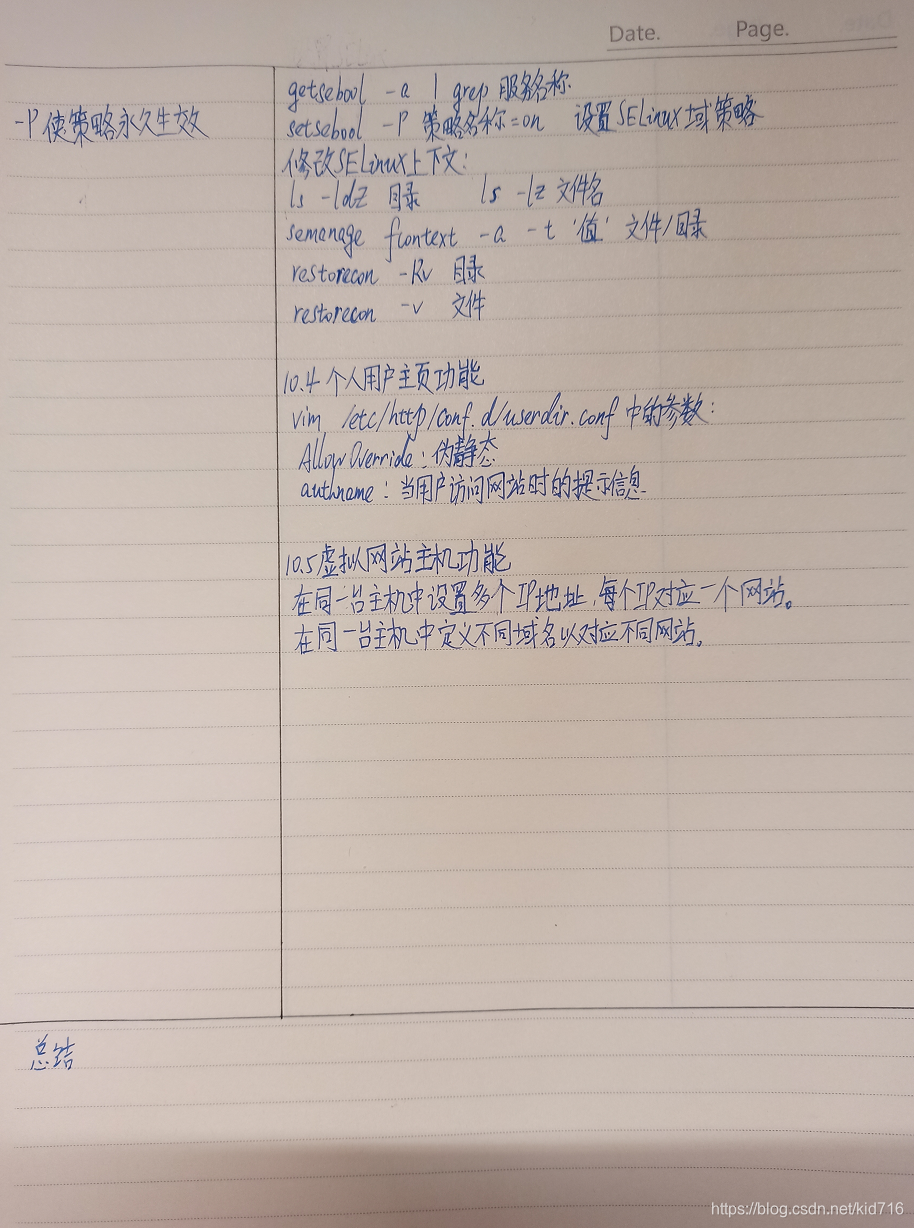 Date. Page.
-P 使策略永久生效
getsebool -a | grep 服务名称
setsebool -P 策略名称=on 设置SELinux域策略
修改SELinux上下文:
ls -ldZ 目录 ls -lz 文件名
semanage fcontext -a -t '值' 文件/目录
restorecon -Rv 目录
restorecon -v 文件
10.4 个人用户主页功能
vim /etc/http/conf.d/userdir.conf 中的参数:
AllowOverride: 伪静态
authname: 当用户访问网站时的提示信息
10.5 虚拟网站主机功能
在同一台主机中设置多个IP地址,每个IP对应一个网站。
在同一台主机中定义不同域名以对应不同网站。
总结
https://blog.csdn.net/kid716